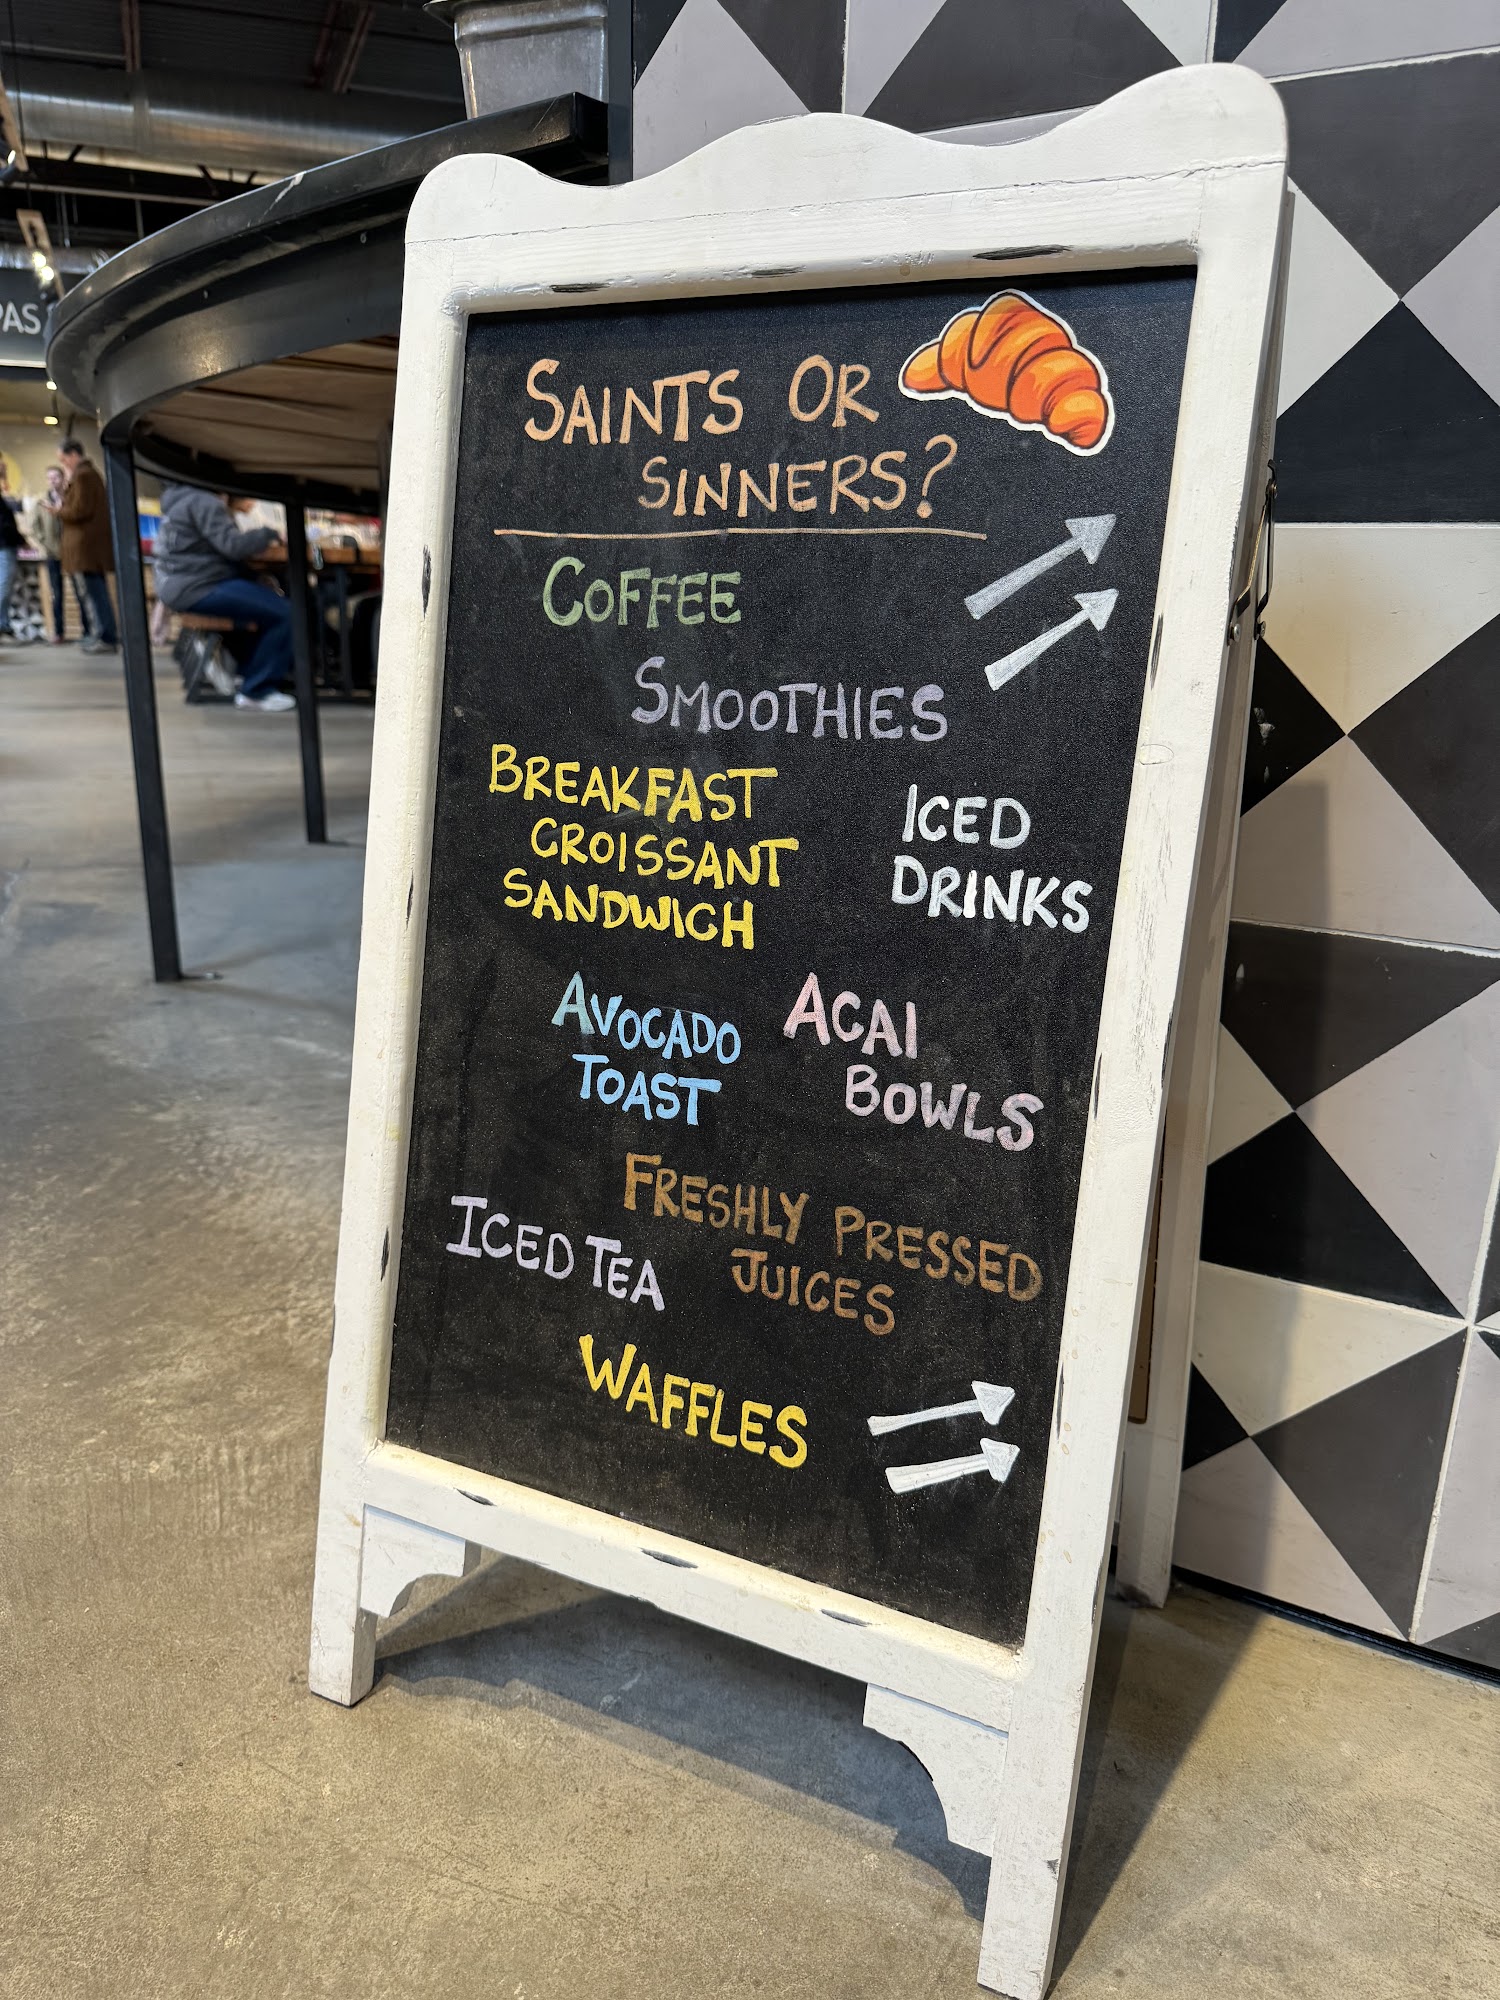 SAINTS OR
SINNERS?
COFFEE
SMOOTHIES
BREAKFAST
CROISSANT
SANDWICH
ICED
DRINKS
AVOCADO
TOAST
ACAI
BOWLS
FRESHLY PRESSED
JUICES
ICED TEA
WAFFLES